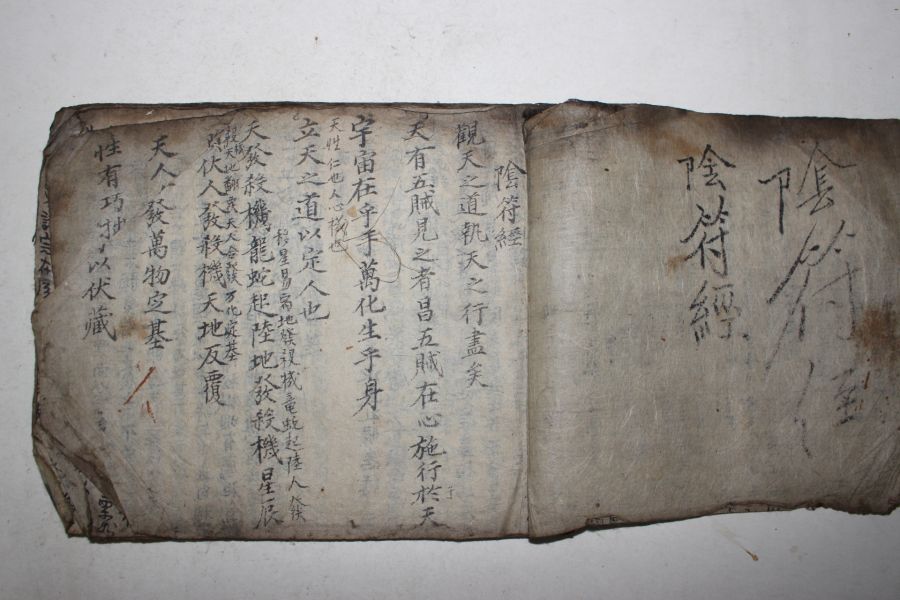 陰符經
陰符經
陰符經
觀天之道執天之行盡矣
天有五賊見之者昌五賊在心施行於天
宇宙在乎手萬化生乎身
天性仁也人心機也
立天之道以定人也
移星易宿地發殺機竜蛇起陸人發
天發殺機龍蛇起陸地發殺機星辰
殺機天地翻覆天人合發万化定基
隱伏人發殺機天地反覆
天人合發萬物定基
性有巧拙以伏藏